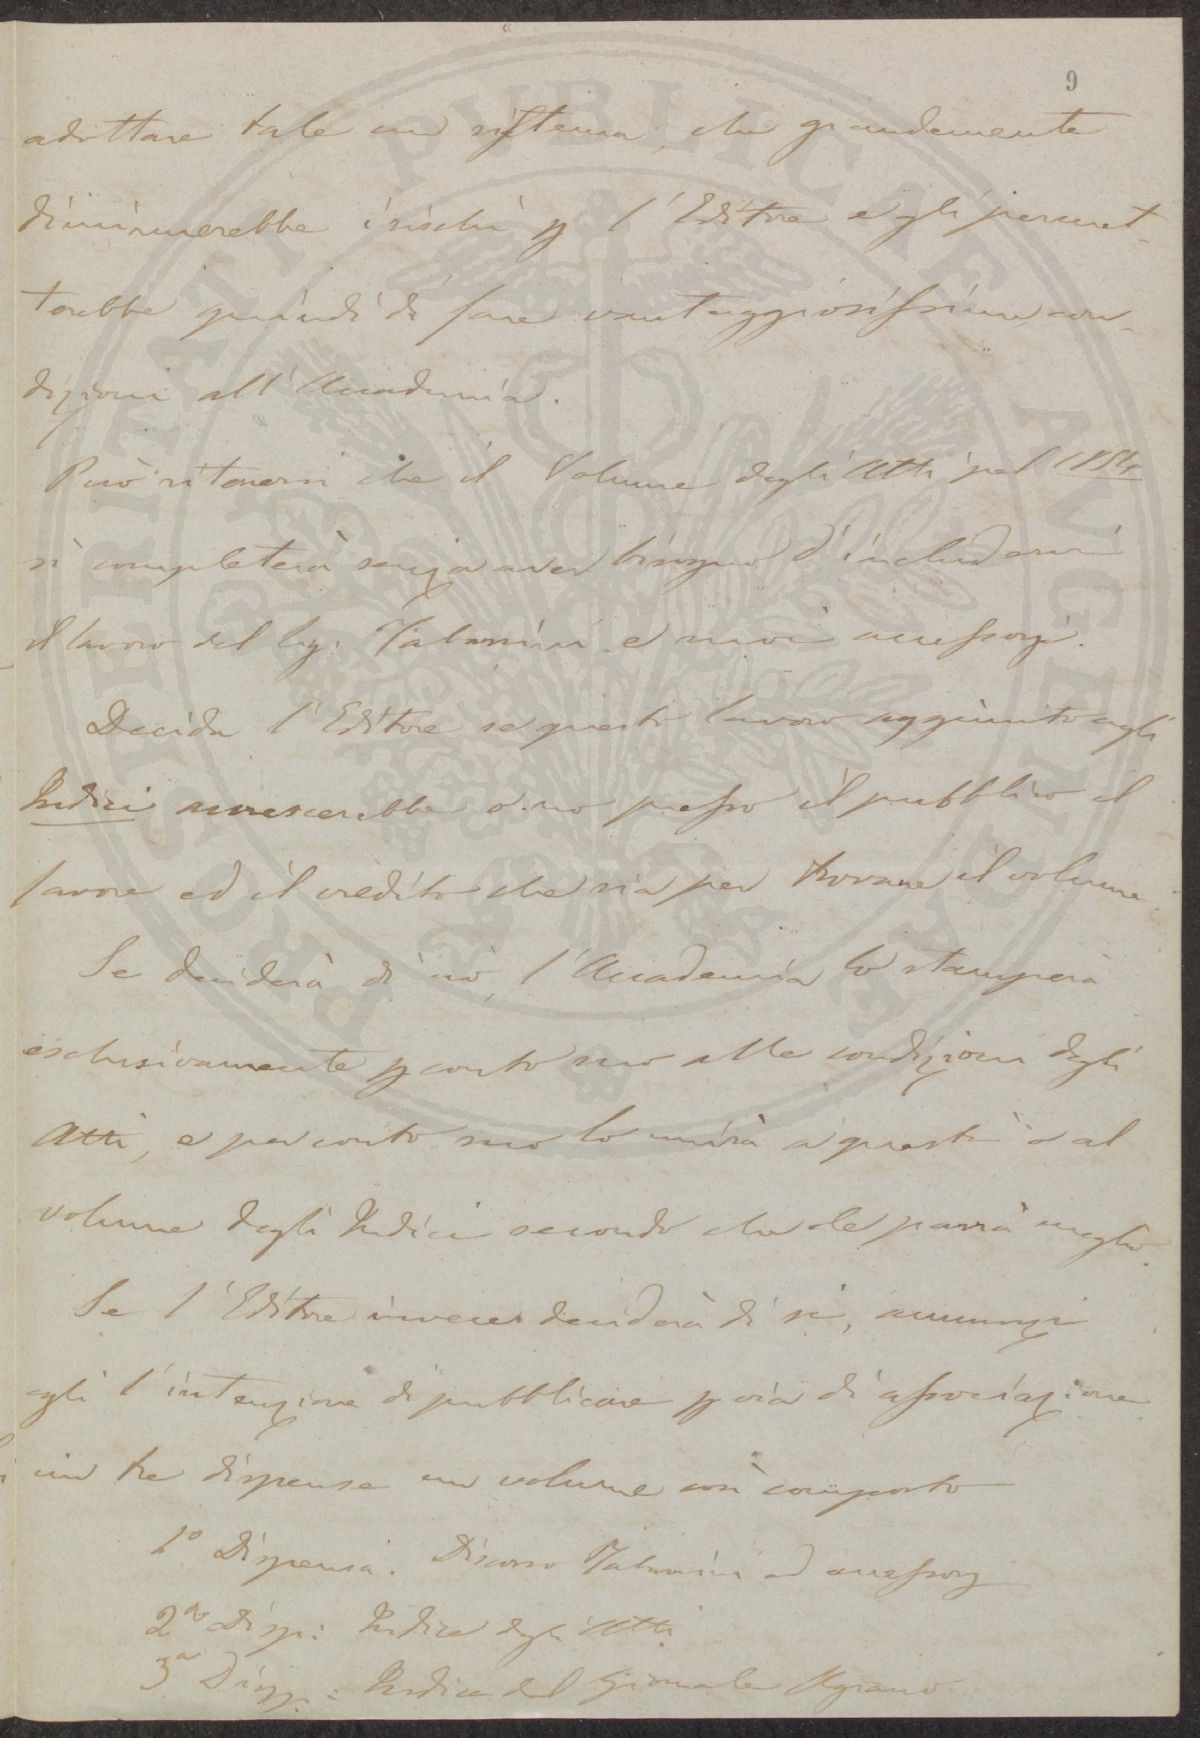 9
adottare tale un sistema, che grandemente
diminuerebbe i rischi p l'Editore e gli permet-
terebbe quindi di fare vantaggiosissime con-
dizioni all'Accademia.
Può ritenersi che il Volume degli Atti pel 1854
si completerà senza aver bisogno d'includervi
il lavoro del Sig: Tabarrini e suoi accessorj.
Decida l'Editore se questo lavoro aggiunto agli
Indici accrescerebbe o no presso il pubblico il
favore ed il credito che sia per trovare il volume.
Se deciderà di nò, l'Accademia lo stamperà
esclusivamente p conto suo alle condizioni degli
Atti, e per conto suo lo unirà a questi o al
volume degli Indici secondo che le parrà meglio.
Se l'Editore invece deciderà di si, annunzi
egli l'intenzione di pubblicare p via di associazione
in tre dispense un volume così composto
1º Dispensa. Discorso Tabarrini ed accessorj
2ª Disp: Indice degli Atti
3ª Disp: Indice del Giornale Agrario
PROSPERITATI PVBLICAE AVGENDAE